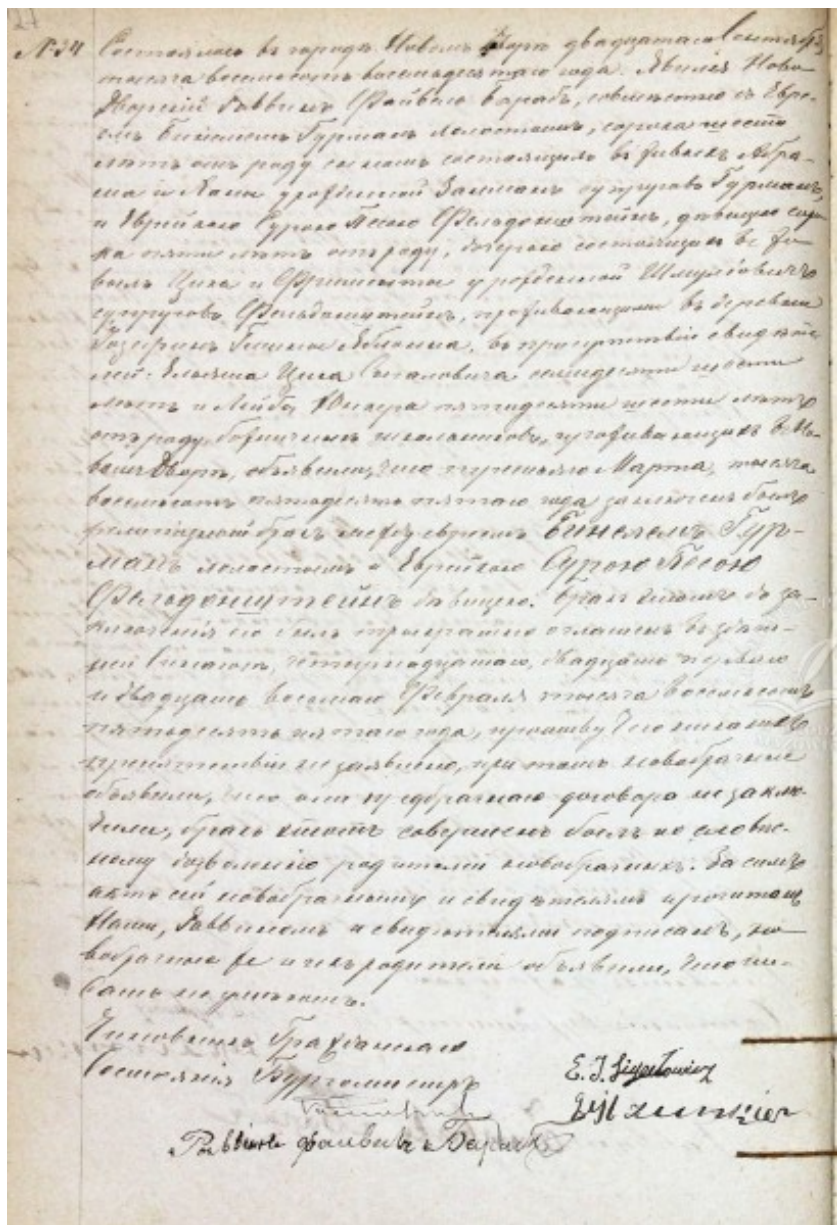 27
№34 Состоялось въ городѣ Новомъ Дворѣ двадцатаго Сентября
тысяча восемьсотъ восемьдесятаго года. Явился Ново-
Дворскій Раввинъ Файвель Барабъ, совмѣстно съ Евре-
емъ Бинемомъ Гурманъ холостымъ, сорока шести
лѣтъ отъ роду сыномъ состоящихъ въ живыхъ Абра-
ма и урожденной супруговъ Гурманъ,
и Еврейкою Сурою Песою Фельдонштейнъ, дѣвицею соро-
ка пяти лѣтъ отъ роду, дочерью состоящихъ въ жи-
выхъ и урожденной Шмулёвичъ
супруговъ Фельдонштейнъ, проживающими въ деревни
Гмины Яблонна, въ присутствіи свидѣте-
лей: семидесяти шести
лѣтъ и Лейба Юнкера пятидесяти шести лѣтъ
отъ роду, школьниковъ, проживающихъ въ Но-
вомъ Дворѣ, объявили, что Марта, тысяча
восемьсотъ пятьдесятъ пятаго года заключенъ былъ
религіозный бракъ между евреемъ Бинемомъ Гур-
манъ холостымъ и Еврейкою Сурою Песою
Фельдонштейнъ дѣвицею. Бракъ до за-
ключенія его былъ троекратно оглашенъ въ здѣш-
ней Синагогѣ, четырнадцатаго, двадцать перваго
и двадцать восьмаго Февраля тысяча восемьсотъ
пятьдесятъ пятаго года, противу чего никакихъ
препятствій не заявлено, при томъ новобрачные
объявили, что они предбрачнаго договора не заклю-
чили, бракъ этотъ совершенъ былъ по словес-
ному дозволенію родителей новобрачныхъ. За симъ
актъ сей новобрачнымъ и свидѣтелямъ прочитанъ
Нами, Раввиномъ и свидѣтелями подписанъ, но-
вобрачные же и ихъ родители объявили, что пи-
сать не умѣютъ.
Чиновникъ Гражданскаго
Состоянія Бургомистръ
E. J.
Раввинъ Файвель Барабъ